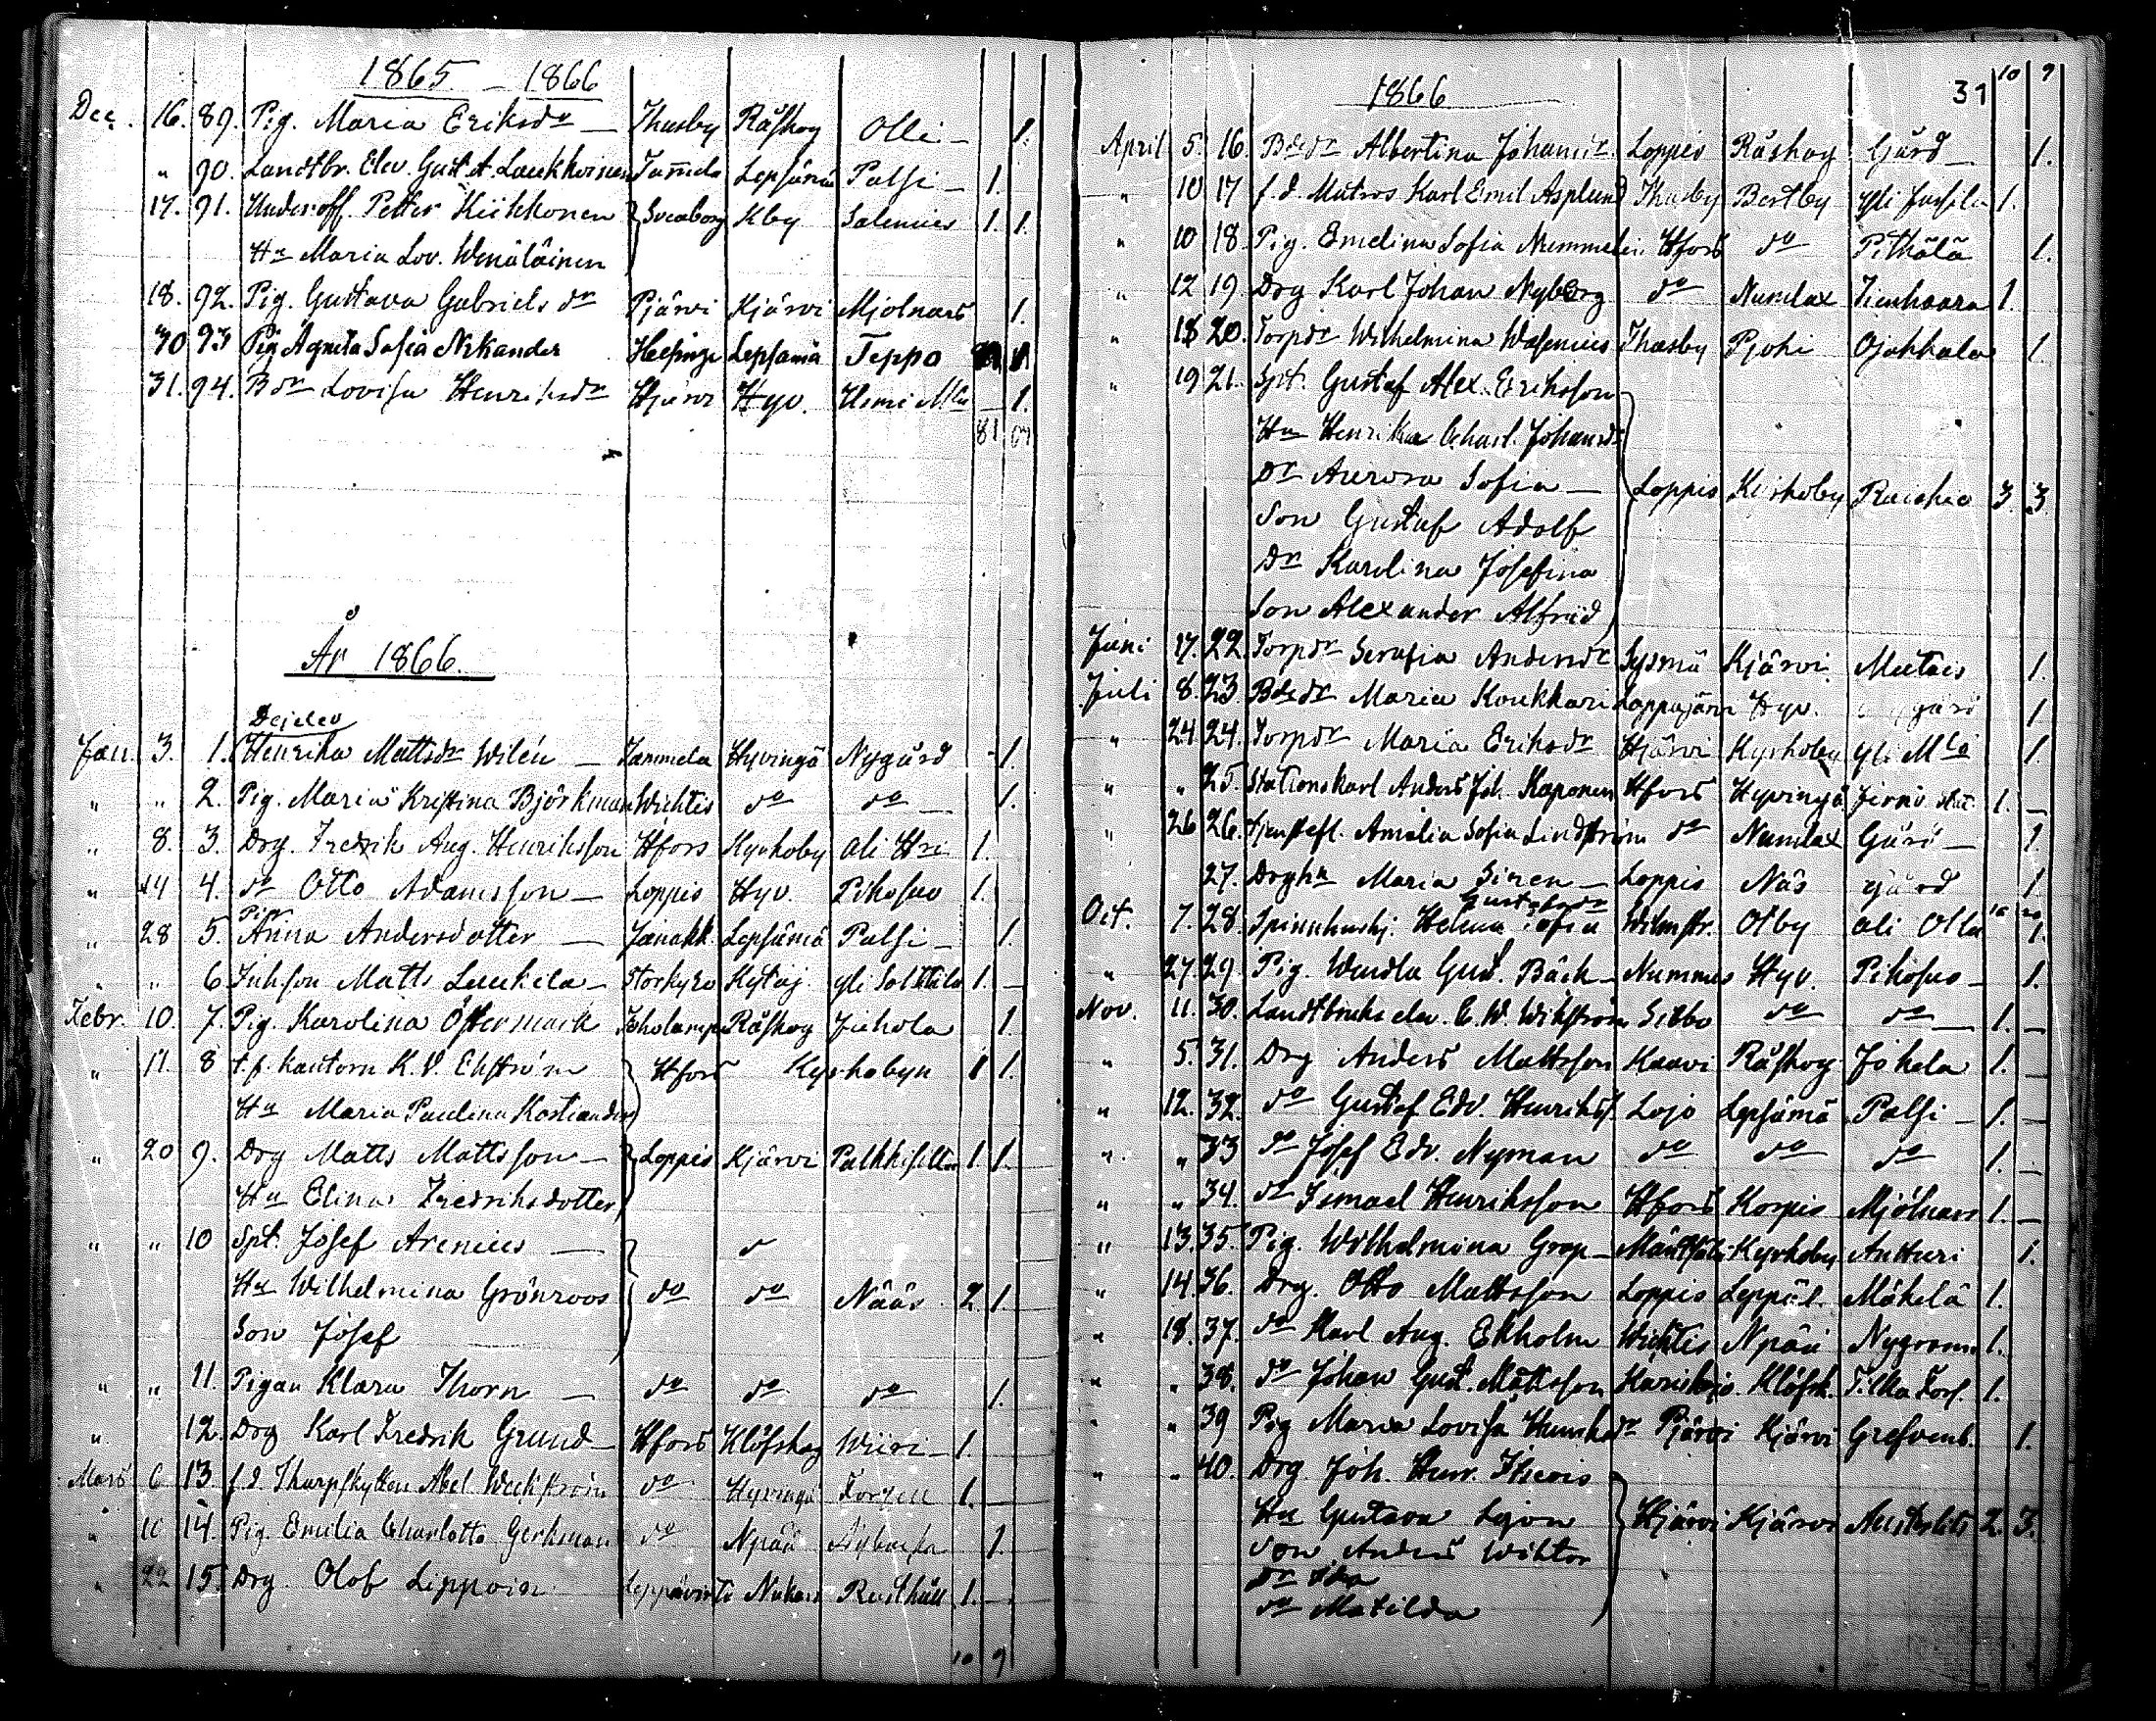 1865 - 1866
Dec. 16. 89. Pig. Maria Eriksdr — Thusby Råskog Olli — 1.
" 90. Landtbr. Elev. Gust. A. Laukkoinen Tammela Lepsämä Palsi — 1.
17. 91. Underoff. Petter Kiikkonen Sveaborg Kby Salenius 1. 1.
Hu Maria Lov. Wenäläinen
18. 92. Pig. Gustava Gabriels dr Pjärvi Kjärvi Mjölnars 1.
30 93 Pig Agneta Sofia Nikander Helsinge Lepsämä Teppo
31. 94. Bdr Lovisa Henriksdr Hjärvi Hyv. Usmi Mla — 1.
81
År 1866.
Dejelev
Jan. 3. 1. Henrika Mattsdr Wilén — Tammela Hyvingä Nygård - 1.
" " 2. Pig. Maria Kristina Björkman Wichtis do do — 1.
" 8. 3. Drg. Fredrik Aug. Henriksson Hfors Kyrkoby Ali Hri 1.
" 14 4. do Otto Adamsson — Loppis Hyv. Pikosuo 1.
Pig
" 28 5. Anna Andersdotter — Janakk. Lepsämä Palsi — 1.
" " 6 Inhson Matts Luukela — Storkyro Kytäj. yli Solttila 1. —
Febr. 10. 7. Pig. Karolina Östermark Råskog Jokela 1.
" 11. 8 t.f. kantorn K. V. Ekström Hfors Kyrkobyn 1 1.
Hu Maria Paulina Kostiander
" 20 9. Drg Matts Mattsson — Loppis Kjärvi Palkkisilta 1. 1.
Hu Elina Fredriksdotter
" " 10 Spt. Josef Arenius —
Hu Wilhelmina Grönroos do do Nääs 2. 1.
Son Josef
" " 11. Pigan Klara Thorn — do do do 1.
" 12. Drg Karl Fredrik Grund — Hfors Klöfskog Wiiri — 1.
Mars 6 13. f.d. Skarpskytten Abel Weckström do Hyvingä Torpen 1. —
" 10 14. Pig. Emilia Charlotta Gerkman do Npää 1.
" 22 15. Drg. Olof Lippoin Leppävirta Nukari Rusthåll 1. —
10 9
1866
31 10 9
April 5. 16. Bdedr Albertina Johansdr. Loppis Råskog Gård — 1.
" 10 17 f.d. Matros Karl Emil Asplund Thusby Bertby yli Jussila 1.
" 10 18. Pig. Emelina Sofia Nummelin Hfors do Pitkälä 1.
" 12 19. Drg Karl Johan Nyberg do Numlax Tienhaara 1.
" 18 20. Torpdr Wilhelmina Wasenius Thusby Pjohi Ojakkala 1.
" 19 21. Spt. Gustaf Alex. Eriksson
Hu Henrika Charl. Johansdr
Dr Aurora Sofia — Loppis Kyrkoby Raiskio 3. 3.
Son Gustaf Adolf
Dr Karolina Josefina
Son Alexander Alfrid
Juni 17. 22. Torpdr Serafia Andersdr Sysmä Kjärvi Mutais 1.
Juli 8. 23. Bdedr Maria Koukkari Lappajärvi Hyv. 1
" 24 24. Torpdr Maria Eriksdr Hjärvi Kyrkoby yli Mla 1.
" " 25. Stationskarl Anders Joh. Kaponen Hfors Hyvingä Jernv. stat. 1. —
" 26 26. Tjenstefl. Amalia Sofia Lindström do Numlax Gård — 1.
27. Drghu Maria Siren — Loppis Näs gård 1.
Gustafsdr
Oct. 7. 28. Spinnhushj. Helena Sofia Wilmstr. Otby Ali Olla 1.
" 27. 29. Pig. Wendla Gust. Bäck — Nummis Hyv. Pikosuo — 1.
Nov. 11. 30. Landtbruks elev. C. W. Wikström Sibbo do do — 1. —
" 5. 31. Drg Anders Mattsson Kaavi Råskog Jokela 1. —
" 12. 32. do Gustaf Edv. Henrikss. Lojo Lepsämä Palsi — 1. —
" " 33 do Josef Edv. Nyman do do do 1. —
" " 34. do Ismael Henriksson Hfors Korpis Mjölnars 1. —
" 13. 35. Pig. Wilhelmina Grop — Mäntsälä Kyrkoby Antturi 1.
" 14. 36. Drg. Otto Mattsson Loppis Leppäl. Mäkelä 1.
" 18. 37. do Karl Aug. Ekholm Wichtis Npää Nygrann 1.
" " 38. do Johan Gust. Mattsson Karislojo Klöfsk. Tilka Torp. 1.
" " 39 Pig Maria Lovisa Henriksdr Pjärvi Kjärvi Grefvenb. 1.
" " 40. Drg. Joh. Henr.
Hu Gustava Lejon Hjärvi Kjärvi 2. 3.
Son Anders Wiktor
Dr Ida
do Matilda